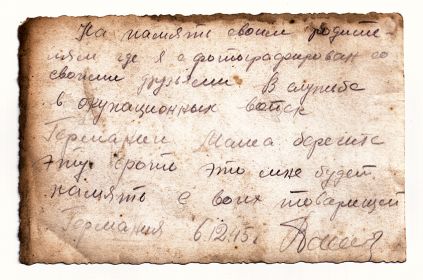 На память своим родите-
лям где я сфотографирован со
своими друзьями В службе
в окупационных войск
Германии Мама берегите
эту фото это мне будет
память с воих товарищей
Германия 6.12.45г